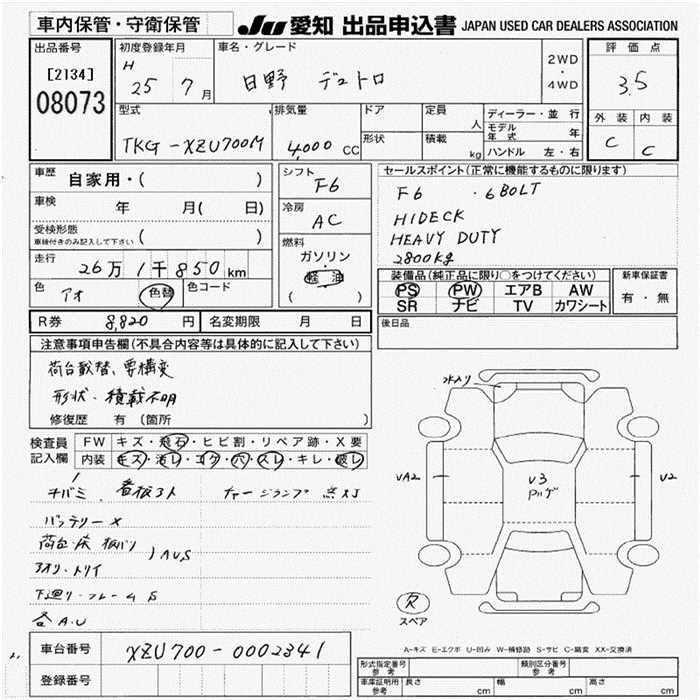 車内保管・守衛保管
JU 愛知 出品申込書 JAPAN USED CAR DEALERS ASSOCIATION
出品番号
[2134]
08073
初度登録年月
H 25 7月
車名・グレード
日野 デュトロ
2WD
・
4WD
評価点
3.5
外装 内装
C C
型式
TKG-XZU700M
排気量
4,000 CC
ドア
形状
定員
人
積載
kg
ディーラー・並行
モデル年式 年
ハンドル 左・右
車歴 自家用・( )
車検 年 月( 日)
受検形態
車検付きのみ記入して下さい ( )
走行 26万1千850km
色 アオ 色替
色コード
シフト
F6
冷房
AC
燃料
ガソリン
・
軽油
( )
セールスポイント(正常に機能するものに限ります)
F6 ・6BOLT
HIDECK
HEAVY DUTY
2800kg
装備品(純正品に限り○をつけてください)
PS PW エアB AW
SR ナビ TV カワシート
新車保証書
有・無
後日品
R券 8,820円 名変期限 月 日
注意事項申告欄(不具合内容等は具体的に記入して下さい)
荷台載替、要構変
形状・積載不明
修復歴 有(箇所 )
検査員記入欄
FW キズ・飛石・ヒビ割・リペア跡・X要
内装 キズ・汚レ・コゲ・穴・スレ・キレ・破レ
看板3ト チャージランプ点灯
バッテリーX
荷台・床 板バリ
アオリ・トリイ
) AUS
下廻リ・フレームS
各A.U
水入り
VA2
V3
Pハゲ
V2
欠
スペア
A-キズ E-エクボ U-凹み W-補修跡 S-サビ C-腐食 XX-交換済
車台番号 XZU700-0002341
登録番号
形式指定番号 参考
類別区分番号 参考
車庫証明用 参考
長さ cm 幅 cm 高さ cm